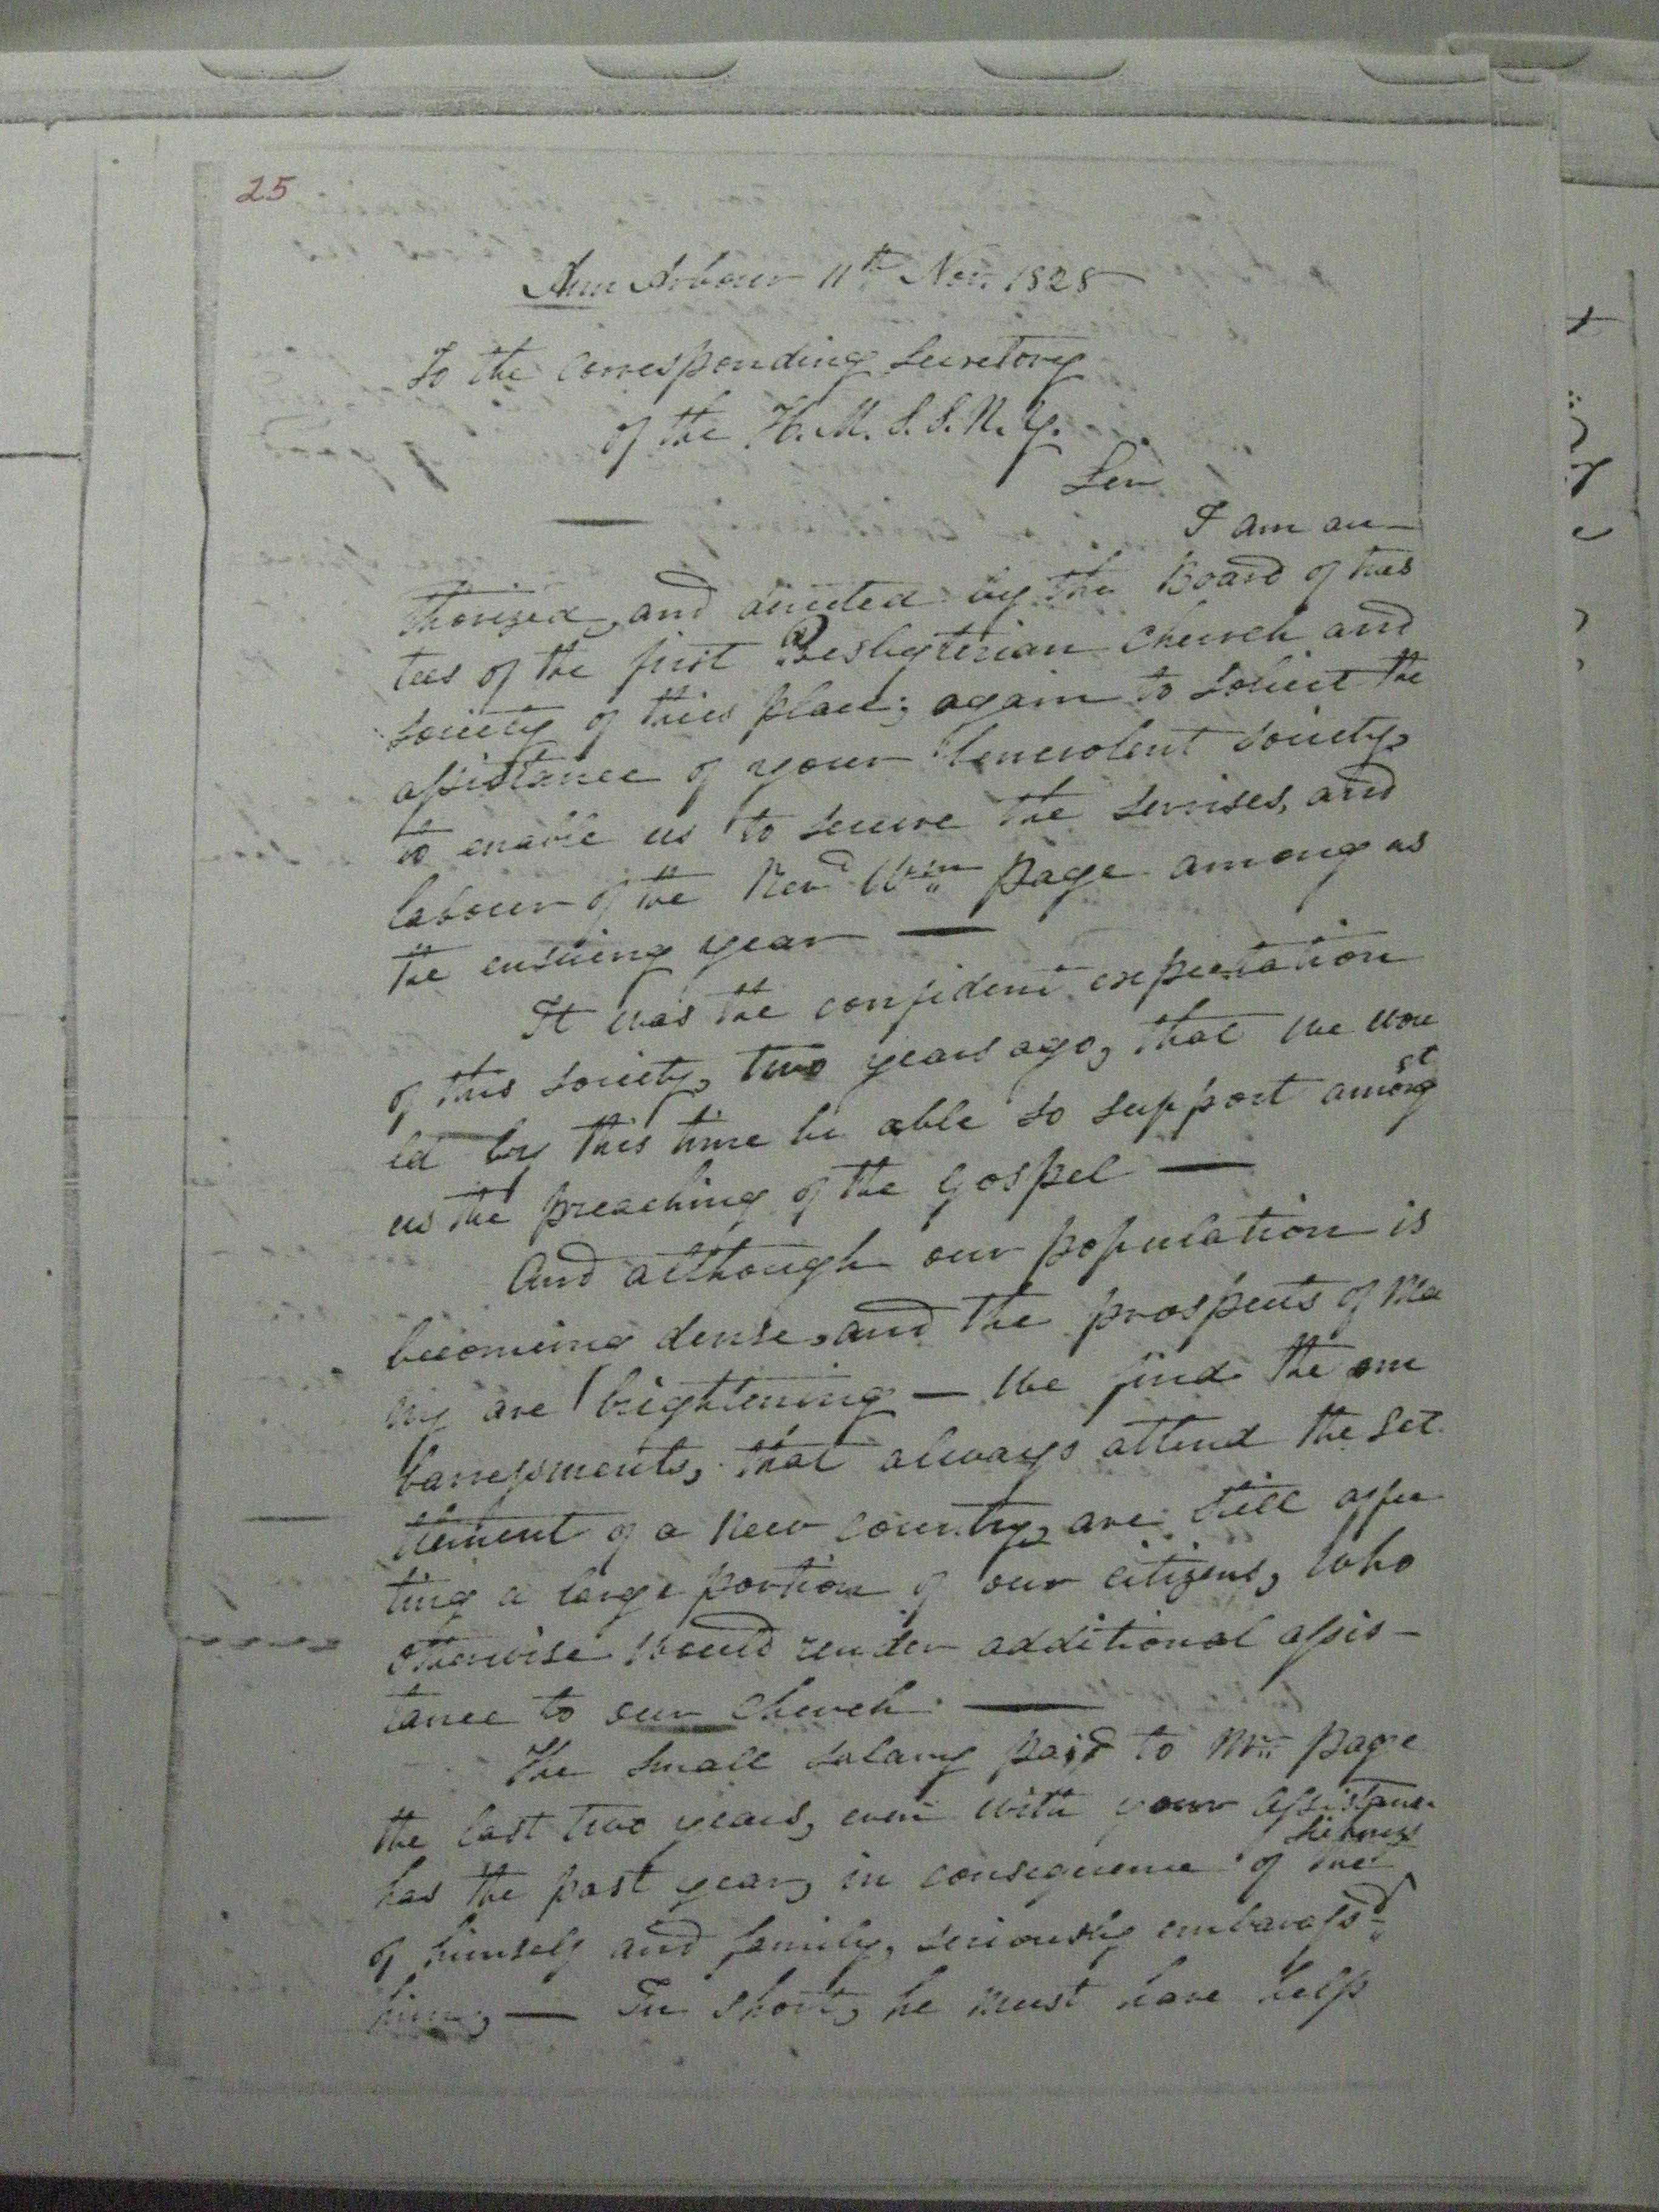 25
Ann Arbour 11th Nov. 1828
To the Corresponding Secretory
of the H. M. S. S. N. Y.
Sir
I am au-
thorized, and directed by the Board of trus
tees of the first Presbyterian Church and
society of this place; again to solicit the
assistance of your benevolent society,
to enable us to secure the servises, and
labour of the Revd Wm Page among us
the ensuing year —
It was the confident expectation
of this society, two years ago, that we wou
ld by this time be able to support amongst
us the preaching of the Gospel —
And although our population is
becoming dense, and the prospects of Ma
ny are brightening — We find the em
barrassments, that always attend the set
tlement of a New Country, are still affec
ting a large portion of our citizens, who
otherwise would render additional assis-
tance to our Church —
The small salary paid to Mr. Page
the last two years, even with your assistance
sickness
has the past year, in consequence of the
of himself and family, seriously embarassd
him, — In short, he must have help